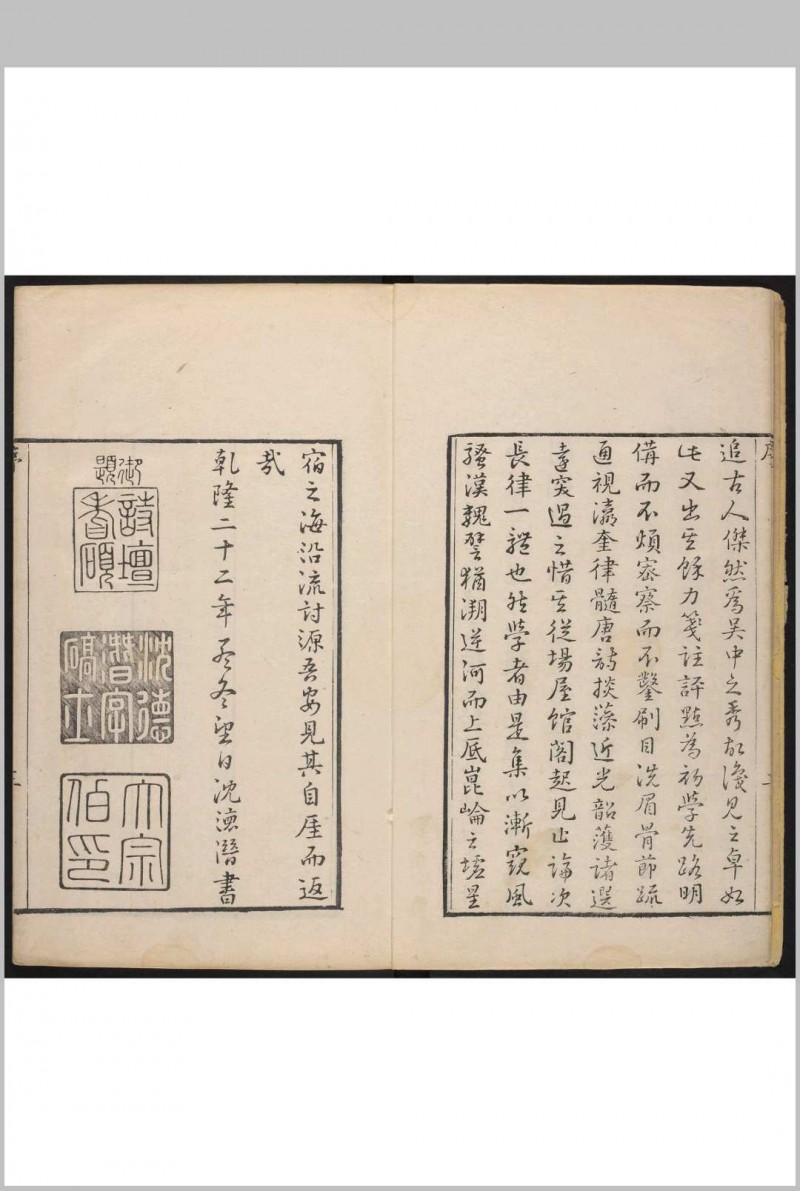 序
追古人傑然爲吴中之秀故淺見之卓如
此又出其餘力箋註評點為初學先路明
備而不煩密察而不鑿刷目洗眉骨節疏
通視瀛奎律髓唐詩掞藻近光韶護諸選
遠突過之惜其從場屋館閣起見止論次
長律一體也然學者由是集以漸窺風
騷漢魏譬猶溯逆河而上厎崑崙之墟星
宿之海沿流討源吾安見其自厓而返
哉
乾隆二十二年孟冬望日沈德潛書
御題
詩壇耆碩
沈德潛字碻士
大宗伯印